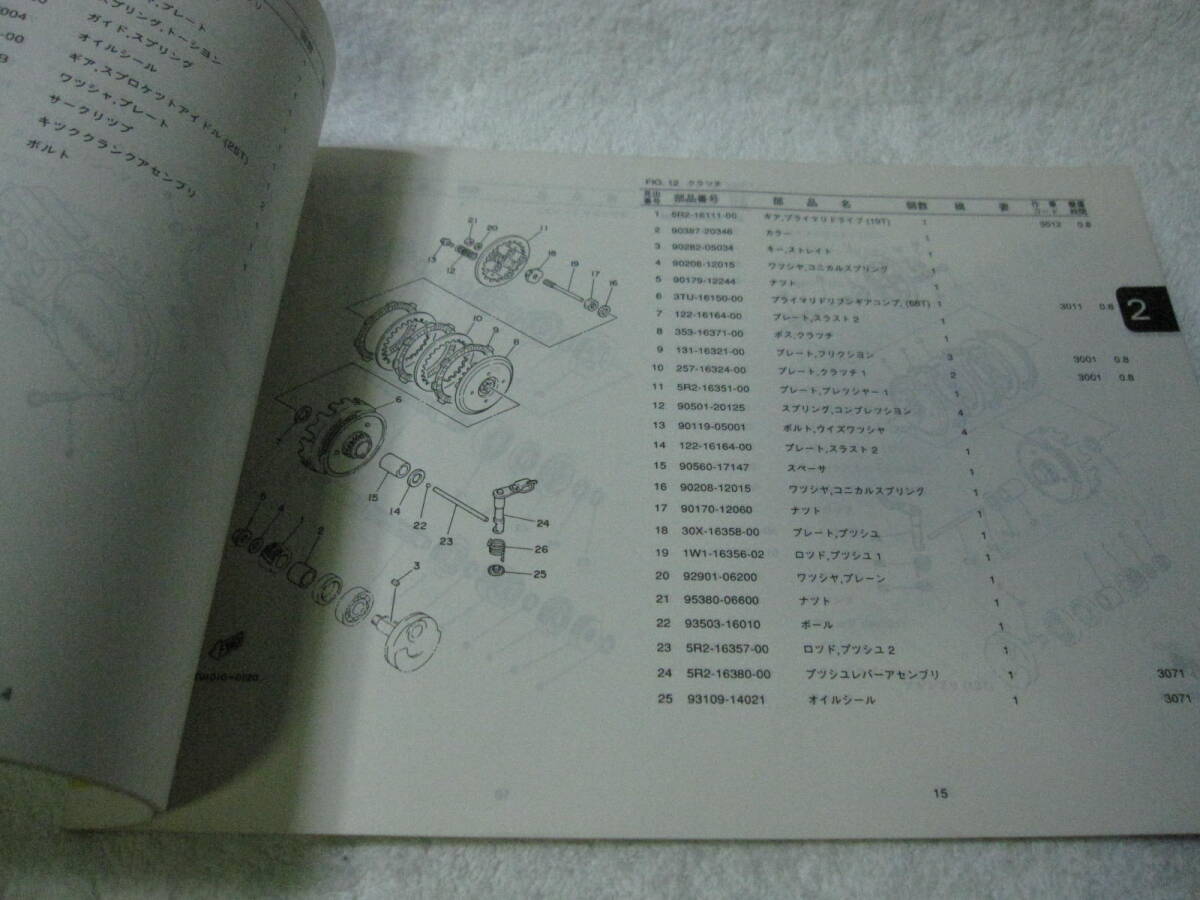 プレート
スプリング,トーション
ガイド,スプリング
オイルシール
ギア,スプロケットアイドル(25T)
ワッシャ,プレート
サークリップ
キッククランクアセンブリ
ボルト
004
-00
FIG. 12 クラッチ
見出番号 部品番号 部品名 個数 摘要 作業コード 整備時間
1 5R2-16111-00 ギア,プライマリドライブ(19T) 1 9512 0.8
2 90387-20346 カラー 1
3 90282-05034 キー,ストレイト 1
4 90208-12015 ワッシャ,コニカルスプリング 1
5 90179-12244 ナット 1
6 3TU-16150-00 プライマリドリブンギアコンプ.(68T) 1 3011 0.8
7 122-16164-00 プレート,スラスト2 1
8 353-16371-00 ボス,クラッチ 1
9 131-16321-00 プレート,フリクション 3 3001 0.8
10 257-16324-00 プレート,クラッチ1 2 3001 0.8
11 5R2-16351-00 プレート,プレッシャー1 1
12 90501-20125 スプリング,コンプレッション 4
13 90119-05001 ボルト,ウイズワッシャ 4
14 122-16164-00 プレート,スラスト2 1
15 90560-17147 スペーサ 1
16 90208-12015 ワッシャ,コニカルスプリング 1
17 90170-12060 ナット 1
18 30X-16358-00 プレート,プッシュ 1
19 1W1-16356-02 ロッド,プッシュ1 1
20 92901-06200 ワッシャ,プレーン 1
21 95380-06600 ナット 1
22 93503-16010 ボール 1
23 5R2-16357-00 ロッド,プッシュ2 1
24 5R2-16380-00 プッシュレバーアセンブリ 1 3071
25 93109-14021 オイルシール 1 3071
2
21 20 11
13 12 18 19 17 16
10 9 8
7 6
15 14 22 23 24
26
25
5 4 1 2
3
15